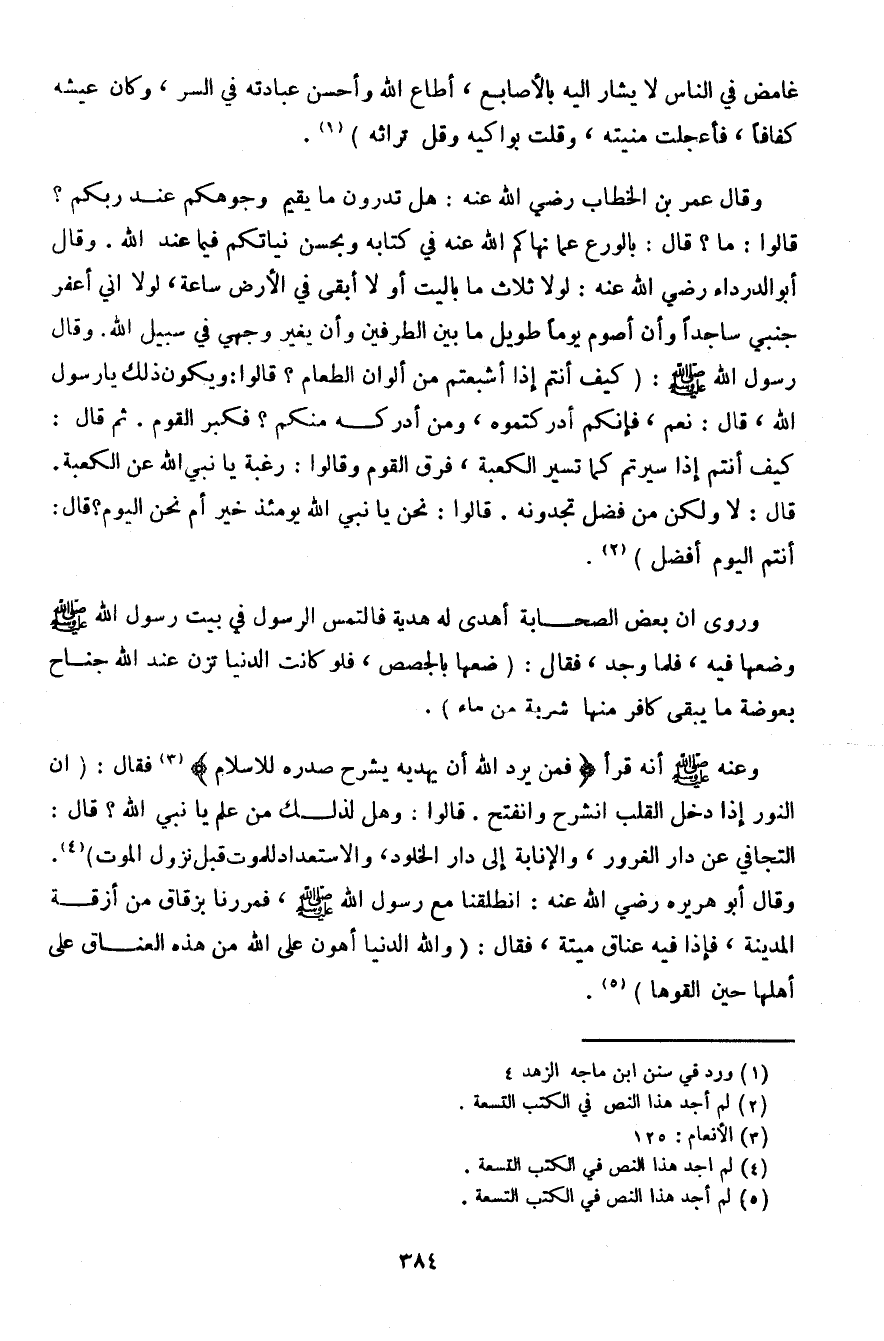 غامض في الناس لا يشار اليه بالأصابع ، أطاع الله وأحسن عبادته في السر ، وكان عيشه
كفافاً ، فأعجلت منيته ، وقلت بواكيه وقل تراثه ) (١) .
وقال عمر بن الخطاب رضي الله عنه : هل تدرون ما يقيم وجوهكم عند ربكم ؟
قالوا : ما ؟ قال : بالورع عما نهاكم الله عنه في كتابه وبحسن نياتكم فيما عند الله . وقال
أبو الدرداء رضي الله عنه : لولا ثلاث ما باليت أو لا أبقى في الأرض ساعة ، لولا اني أعفر
جنبي ساجداً وأن أصوم يوماً طويل ما بين الطرفين وأن يغبر وجهي في سبيل الله. وقال
رسول الله ﷺ : ( كيف أنتم إذا أشبعتم من ألوان الطعام ؟ قالوا : ويكون ذلك يا رسول
الله ، قال : نعم ، فإنكم أدركتموه ، ومن أدركه منكم ؟ فكبر القوم . ثم قال :
كيف أنتم إذا سيرتم كما تسير الكعبة ، فرق القوم وقالوا : رغبة يا نبي الله عن الكعبة.
قال : لا ولكن من فضل تجدونه . قالوا : نحن يا نبي الله يومئذ خير أم نحن اليوم؟ قال :
أنتم اليوم أفضل ) (٢) .
وروى ان بعض الصحابة أهدى له هدية فالتمس الرسول في بيت رسول الله ﷺ
وضعها فيه ، فلما وجد ، فقال : ( ضعها بالجصص ، فلو كانت الدنيا تزن عند الله جناح
بعوضة ما يبقى كافر منها شربة من ماء ) .
وعنه ﷺ أنه قرأ ﴿ فمن يرد الله أن يهديه يشرح صدره للاسلام ﴾ (٣) فقال : ( ان
النور إذا دخل القلب انشرح وانفتح . قالوا : وهل لذلك من علم يا نبي الله ؟ قال :
التجافي عن دار الغرور ، والإنابة إلى دار الخلود، والاستعداد للموت قبل نزول الموت) (٤).
وقال أبو هريره رضي الله عنه : انطلقنا مع رسول الله ﷺ ، فمررنا بزقاق من أزقة
المدينة ، فإذا فيه عناق ميتة ، فقال : ( والله الدنيا أهون على الله من هذه العناق على
أهلها حين القوها ) (٥) .
(١) ورد في سنن ابن ماجه الزهد ٤
(٢) لم أجد هذا النص في الكتب التسعة .
(٣) الأنعام : ١٢٥
(٤) لم اجد هذا النص في الكتب التسعة .
(٥) لم أجد هذا النص في الكتب التسعة .
٣٨٤